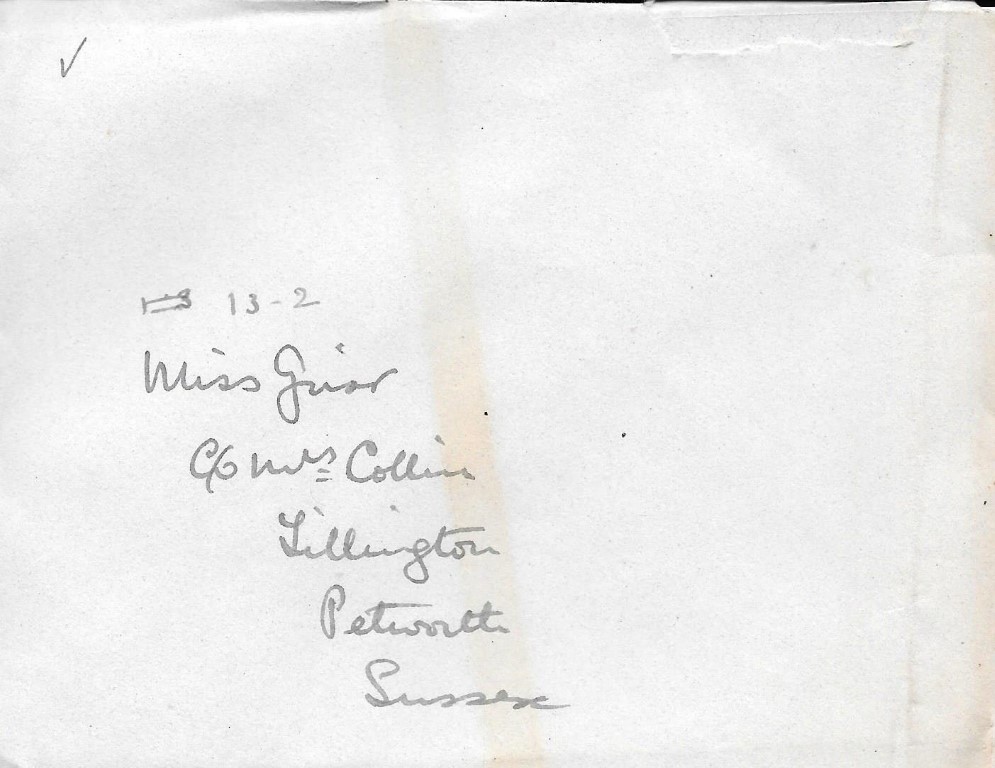 13-2
Miss Grier
C/o Mrs Collin
Tillington
Petworth
Sussex